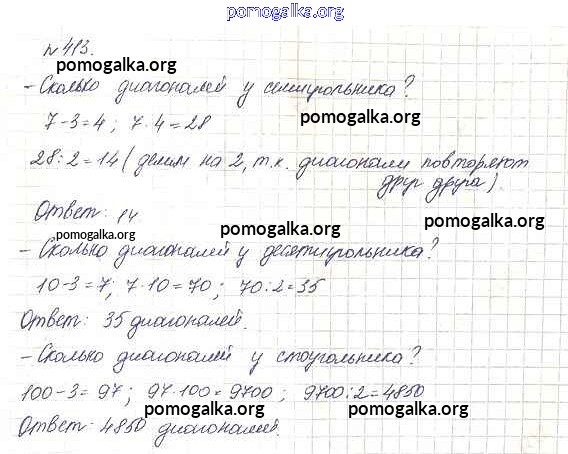 pomogalka.org
№ 413.
pomogalka.org
pomogalka.org
- Сколько диагоналей у семиугольника?
pomogalka.org
7-3=4; 7·4=28
28:2=14 (делим на 2, т.к. диагонали повторяют
друг друга).
Ответ: 14
pomogalka.org
pomogalka.org
pomogalka.org
- Сколько диагоналей у десятиугольника?
10-3=7; 7·10=70; 70:2=35
Ответ: 35 диагоналей.
pomogalka.org
pomogalka.org
- Сколько диагоналей у стоугольника?
100-3=97; 97·100=9700; 9700:2=4850
pomogalka.org
pomogalka.org
Ответ: 4850 диагоналей.